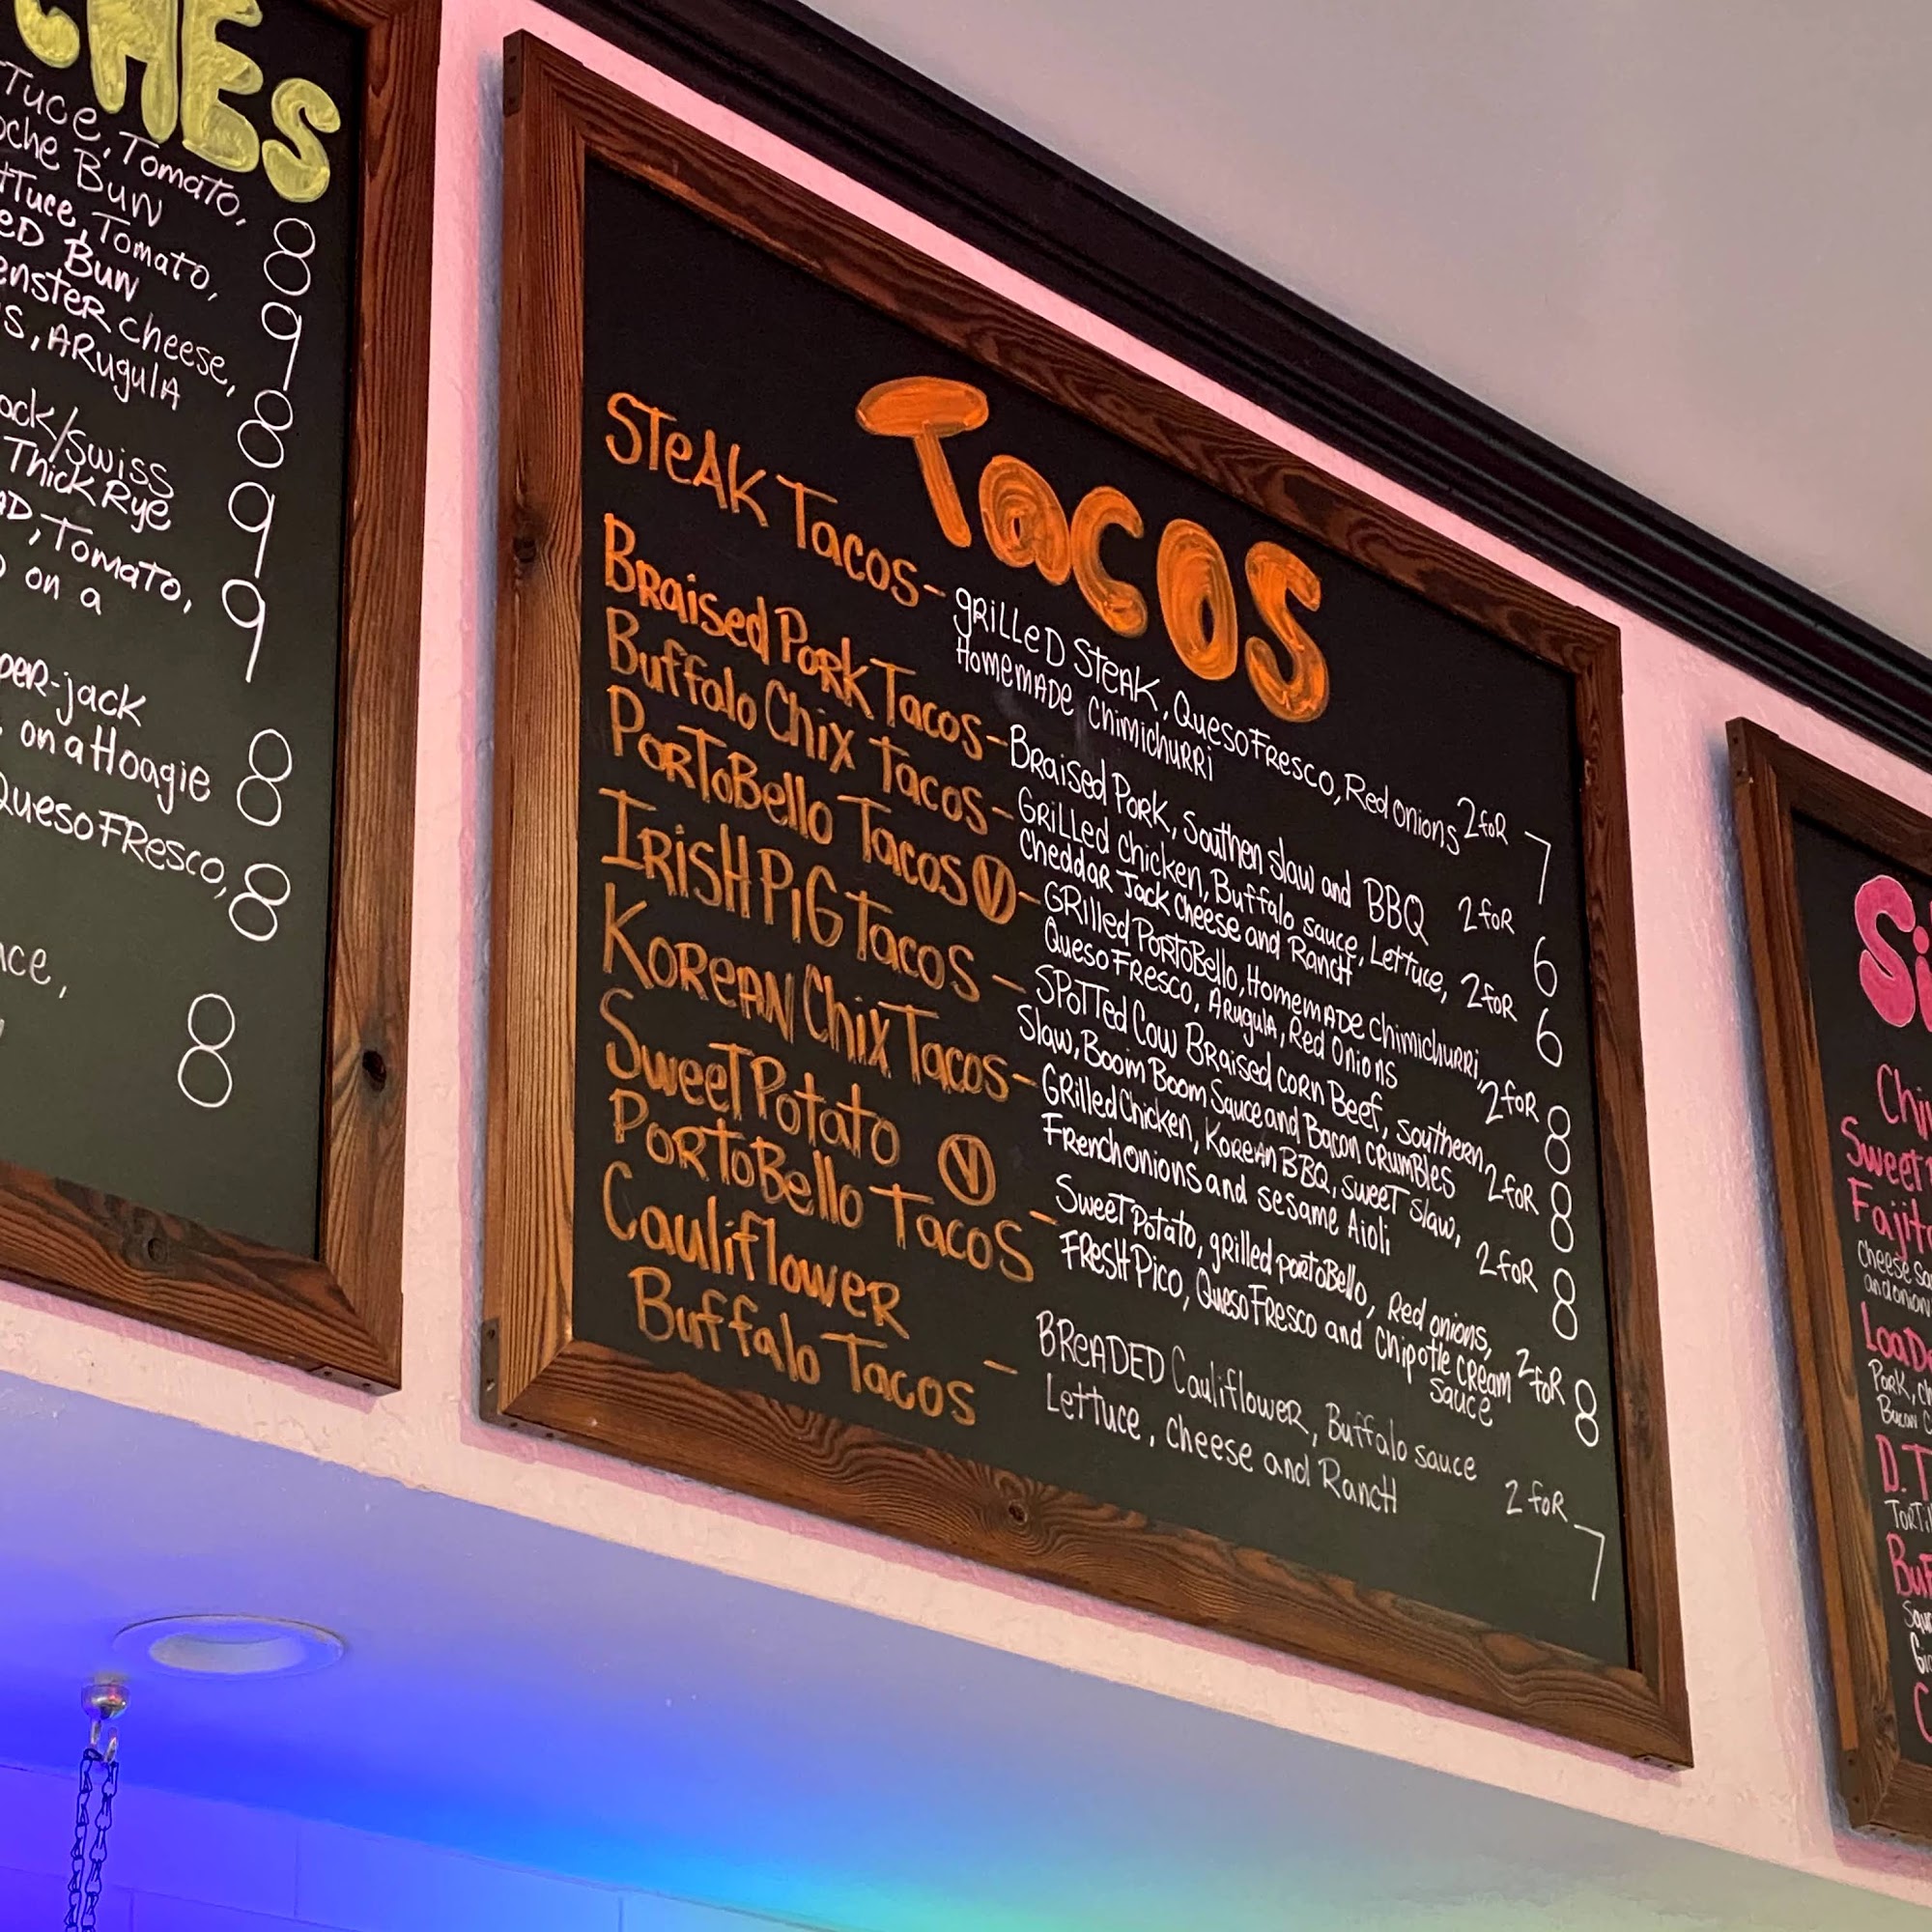 Tuce, Tomato,
oche Bun
8
Tuce, Tomato,
eD Bun
9
enster cheese,
s, ARugulA
8
ock/swiss
Thick Rye
9
Tomato,
on a
9
per-jack
on a Hoagie
8
Queso FResco,
8
8
Tacos
STeAK Tacos - gRiLLeD STeaK, Queso Fresco, Red onions 2 foR 7
HomemADe chimichurri
BRaised PoRK Tacos - BRaised PoRK, Southern slaw and BBQ 2 foR 6
Buffalo Chix Tacos - GRiLLed chicken, Buffalo sauce, LeTTuce, 2 foR 6
cheddaR Jack cheese and Ranch
PoRToBello Tacos V - GRilled PoRToBello, HomemADe chimichurri, 2 foR 8
Queso Fresco, ARugulA, Red Onions
IRisH PiG Tacos - SPoTTed Cow BRaised corn Beef, southern 2 foR 8
Slaw, Boom Boom Sauce and Bacon cRumBles
KoReAN Chix Tacos - GRilled Chicken, KoReAn BBQ, sweeT slaw, 2 foR 8
Frenchonions and sesame Aioli
SweeT Potato V
PoRToBello Tacos - SweeT Potato, gRilled poRToBello, Red onions, 2 foR 8
FResH Pico, Queso Fresco and Chipotle cream
sauce
CauliflowER
Buffalo Tacos - BReADED CauliflowER, Buffalo sauce 2 foR 7
LeTTuce, cheese and RancH
Sweet
LoaD
D.T